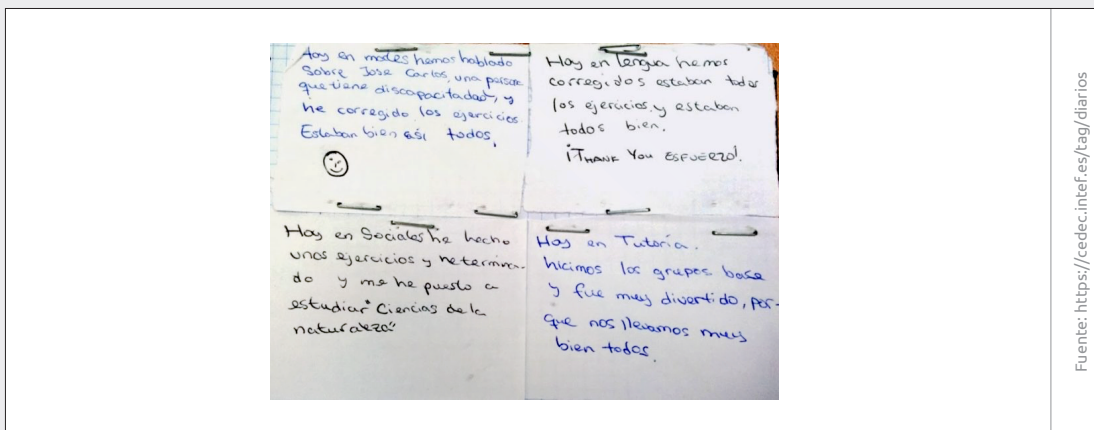 Hoy en mates hemos hablado
sobre Jose Carlos, una persona
que tiene discapacitadad, y
he corregido los ejercicios.
Estaban bien asi todos.
Hoy en Lengua hemos
corregidos estaban todos
los ejercicios y estaban
todos bien.
¡THANK YOU ESFUERZO!
Hoy en Sociales he hecho
unos ejercicios y he termina-
do y me he puesto a
estudiar "Ciencias de la
naturaleza"
Hoy en Tutoría.
hicimos los grupos base
y fue muy divertido, por-
que nos llevamos muy
bien todos.
Fuente: https://cedec.intef.es/tag/diarios